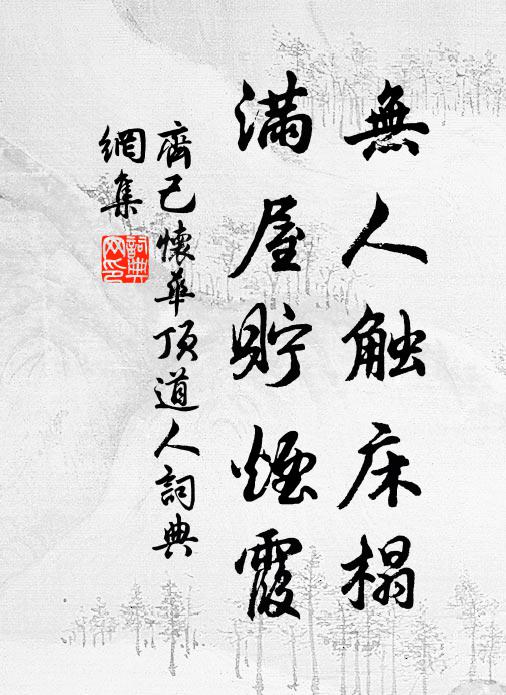 無人触床榻
満屋貯煙霞
齊己懷華頂道人詞典
網集
詞典
网印